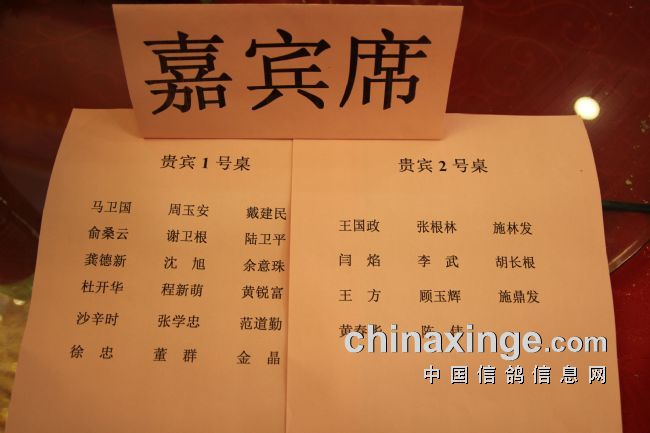 嘉宾席
贵宾1号桌
马卫国 周玉安 戴建民
俞桑云 谢卫根 陆卫平
龚德新 沈旭 余意珠
杜开华 程新萌 黄锐富
沙辛时 张学忠 范道勤
徐忠 董群 金晶
贵宾2号桌
王国政 张根林 施林发
闫焰 李武 胡长根
王方 顾玉辉 施鼎发
黄春华 陈伟
chinaxinge.com
中国信鸽信息网